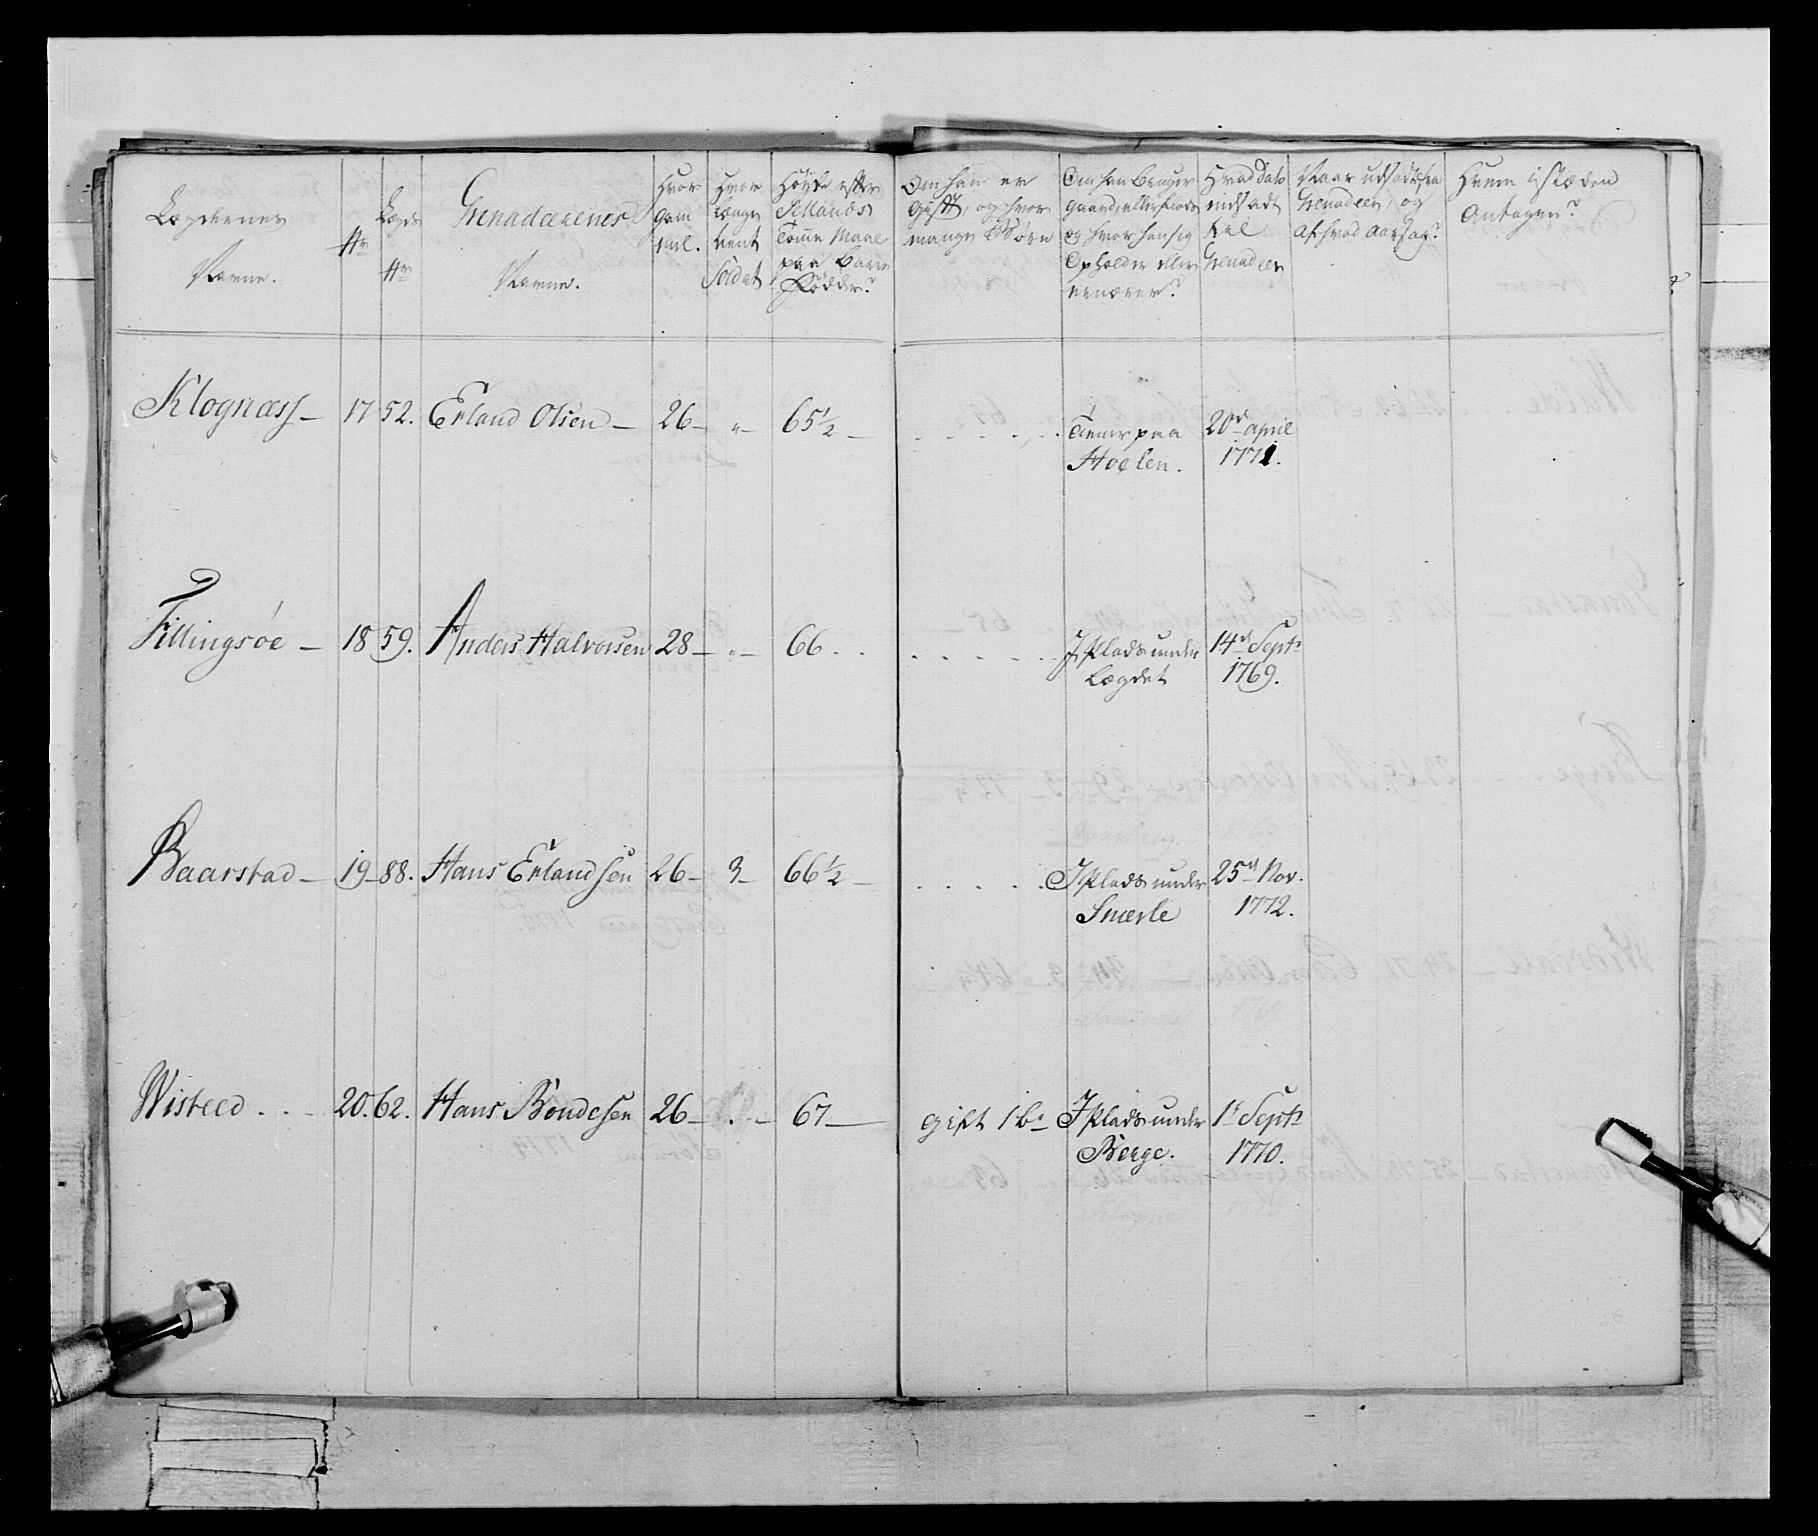 Lægdernes
Navne.
No
Lægds
No
Grenadeerenes
Navne.
Hvor
gam
mel.
Hvor
længe
tient
Soldat
Høyde efter
Sellands
Tomme Maal
paa bare
Födder?
Om han er
Gift, og hvor
mange Börn
Om han Bruger
gaard, eller plads
og hvor han sig
Opholder eller
ernærer?
Hvad Dato
indsadt
til
Grenadeer
Naar udsadt fra
Grenadeer, og
af hvad Aarsag?
Hvem i stæden
Antagen?
Klognæss – 17 52. Erland Olsen – 26 – „ – 65 1/2 – . . . . . Tiener paa 20de april
Hoelen. 1771.
Fillingsøe – 18 59. Anders Halvorsen 28 – „ – 66 . . . . . . . I Plads under 14d Septr
Lægdet 1769.
Baarstad – 19 – 88. Hans Erlandsen 26 – 3 – 66 1/2 – . . . . . I Plads under 25d Nov.
Snerle 1772.
Wisteed . . – 20. 62. Hans Bondesen 26 – . – 67 – gift 1 br I Plads under 1t Septr
Berge. 1770.